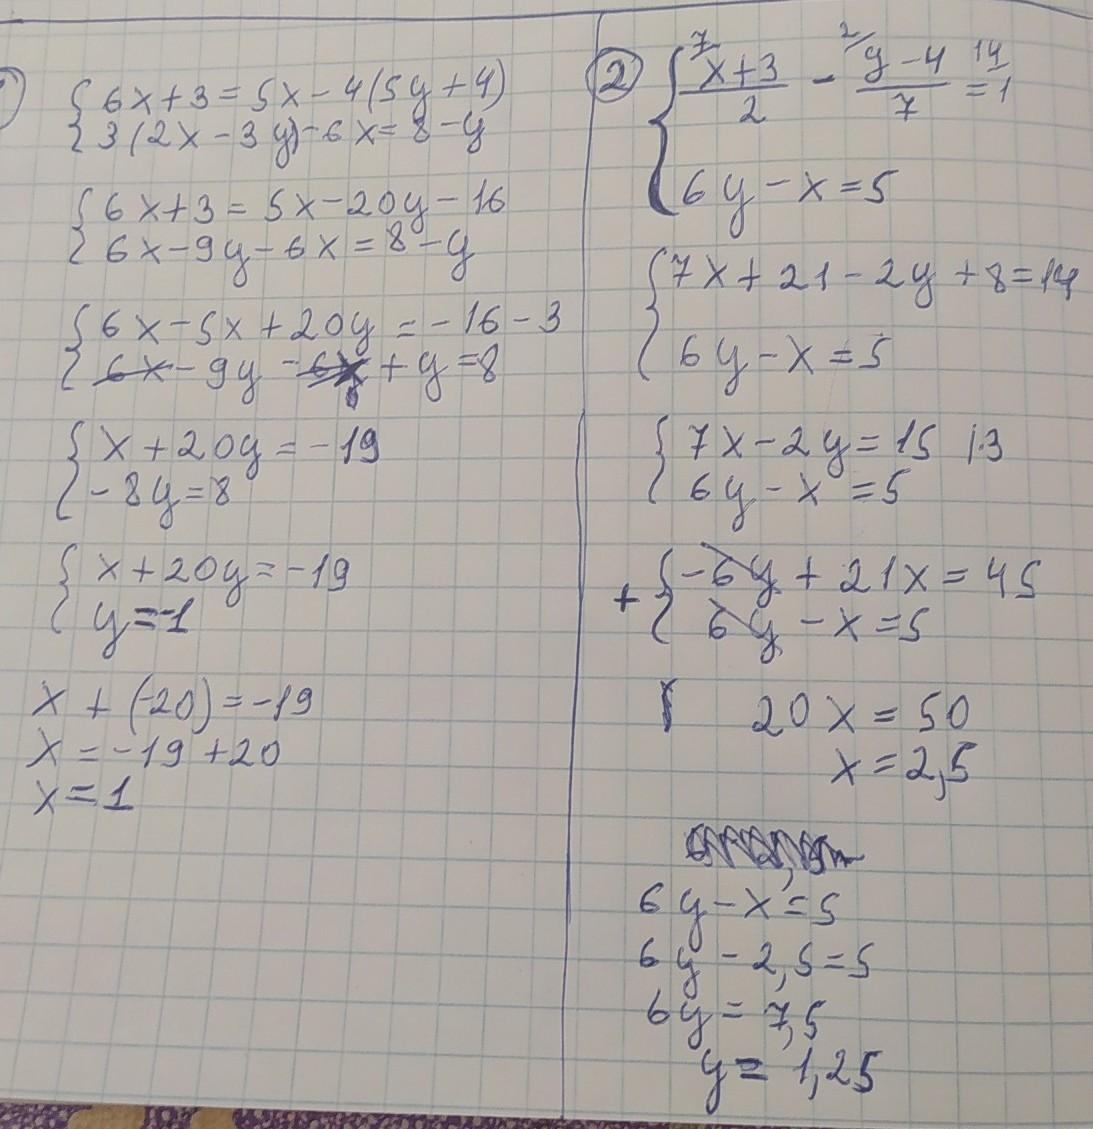 { 6x+3=5x-4(5y+4)
{ 3(2x-3y)-6x=8-y
{ 6x+3=5x-20y-16
{ 6x-9y-6x=8-y
{ 6x-5x+20y=-16-3
{ 6x-9y-6x+y=8
{ x+20y=-19
{ -8y=8
{ x+20y=-19
{ y=-1
x+(-20)=-19
x=-19+20
x=1
2 { 7/ x+3/2 - 2/ y-4/7 = 14/ 1
{ 6y-x=5
{ 7x+21-2y+8=14
{ 6y-x=5
{ 7x-2y=15 |·3
{ 6y-x=5
+ { -6y+21x=45
{ 6y-x=5
20x=50
x=2,5
6y-x=5
6y-2,5=5
6y=7,5
y=1,25